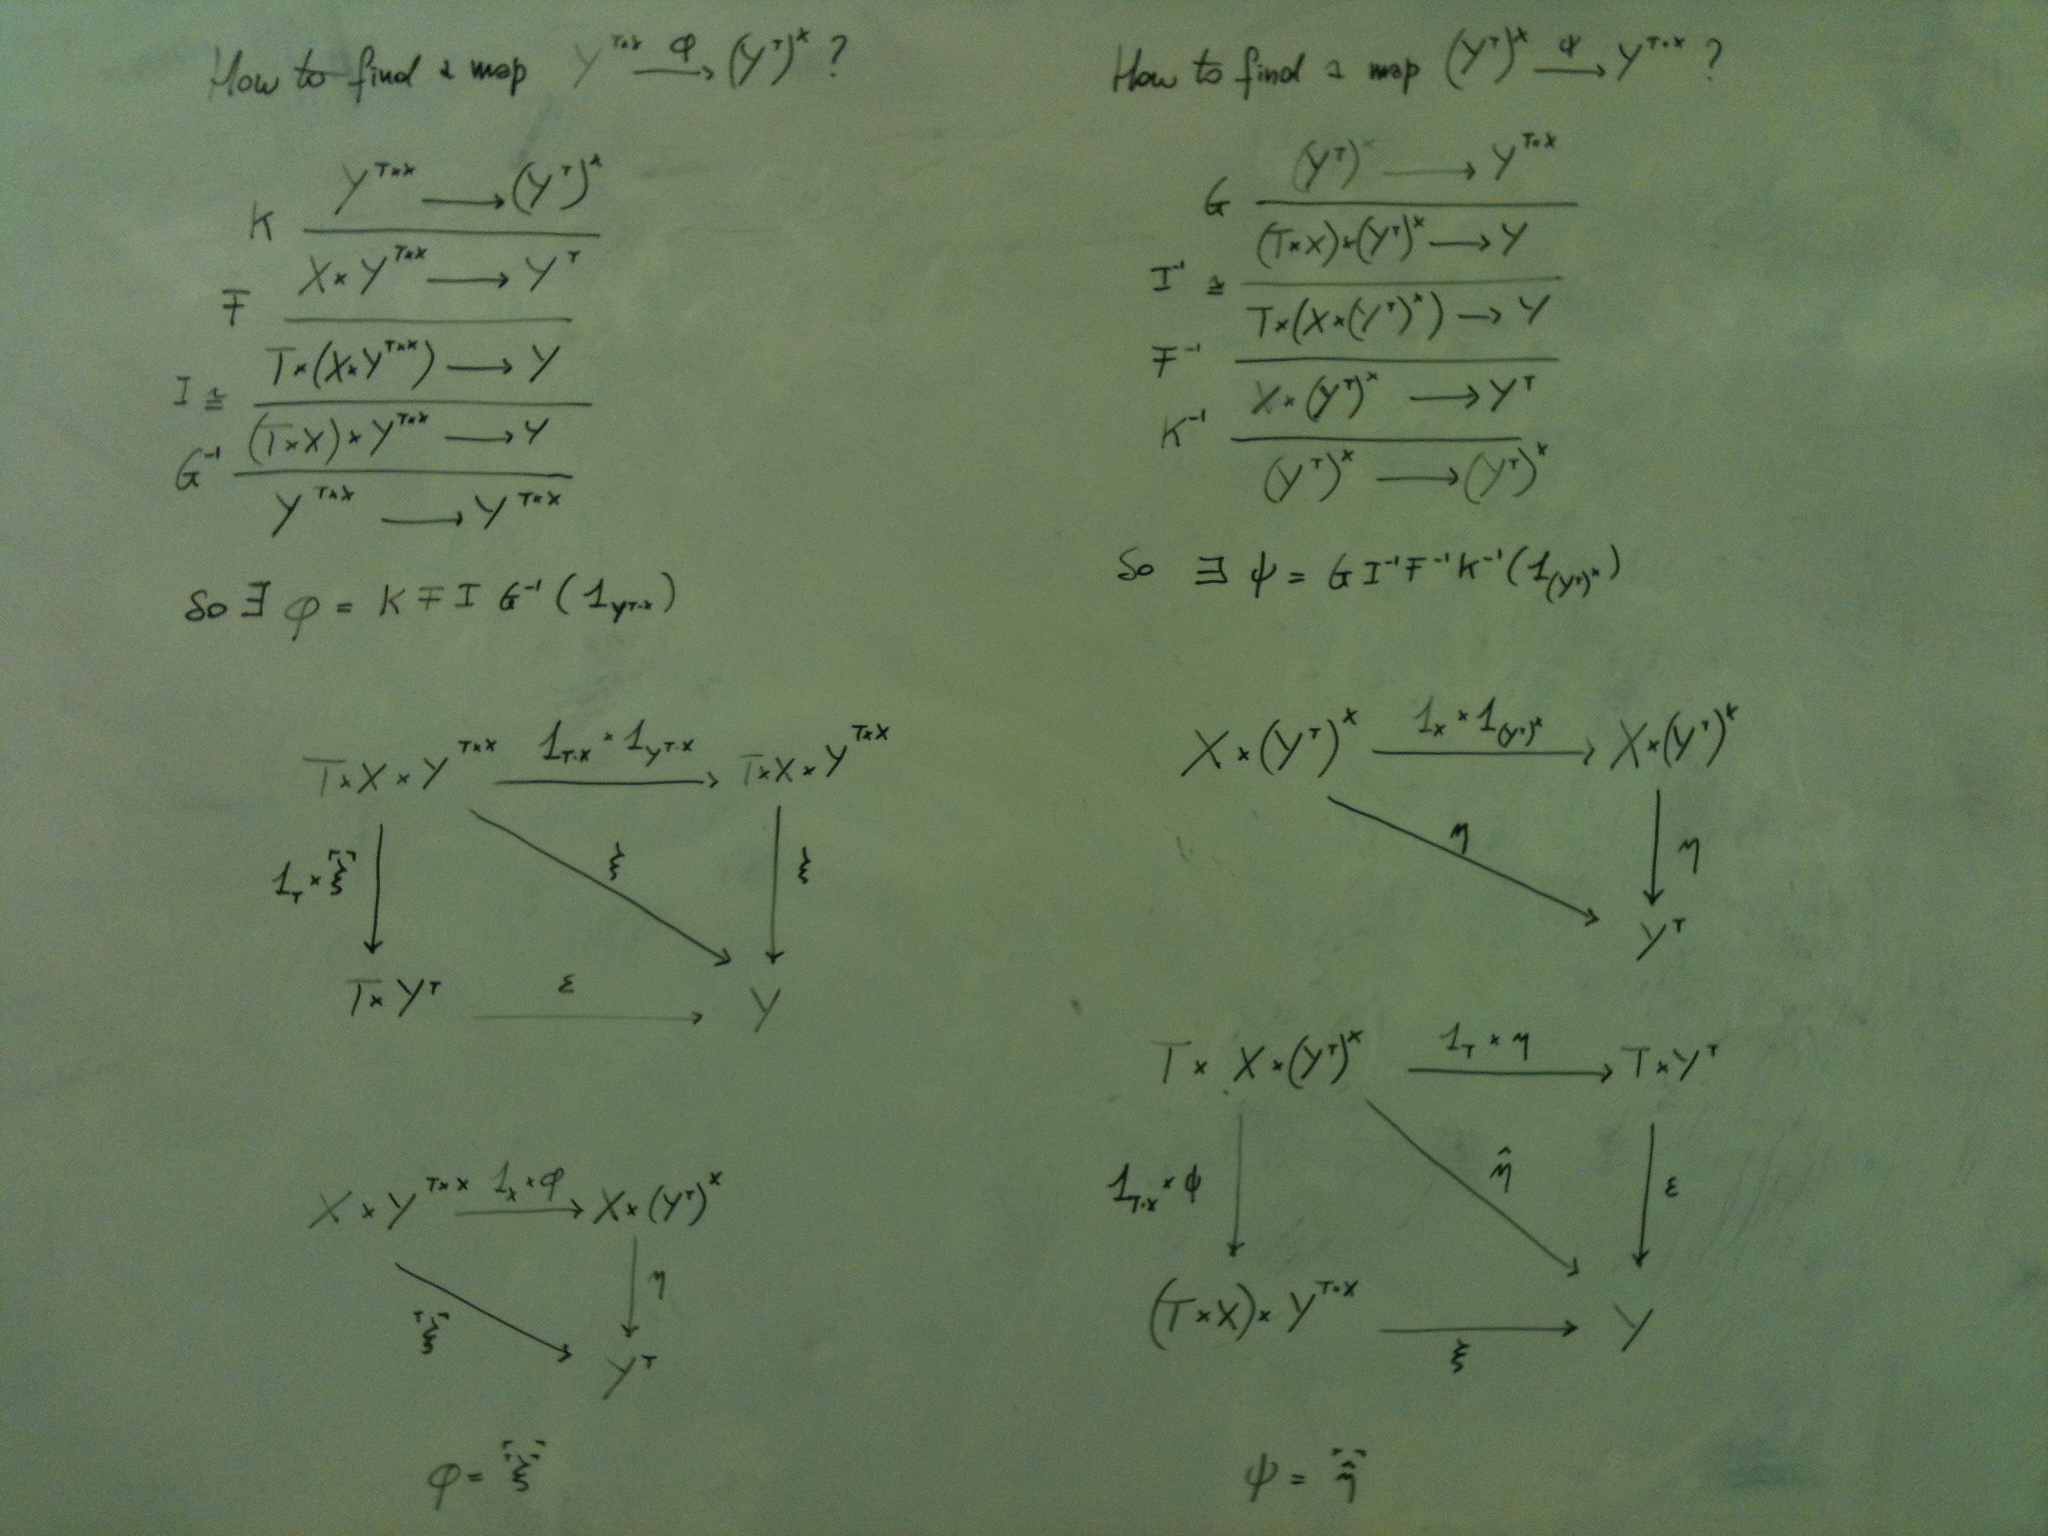 How to find a map Y^{T×X} —φ→ (Y^T)^X ?
Y^{T×X} ⟶ (Y^T)^X
K
X × Y^{T×X} ⟶ Y^T
F
T×(X×Y^{T×X}) ⟶ Y
I ≅
(T×X)×Y^{T×X} ⟶ Y
G^{-1}
Y^{T×X} ⟶ Y^{T×X}
So ∃ φ = K F I G^{-1} (1_{Y^{T×X}})
T×X×Y^{T×X} 1_{T×X} × 1_{Y^{T×X}} T×X×Y^{T×X}
1_T × ⌜ξ⌝ ξ ξ
T×Y^T ε Y
X × Y^{T×X} 1_X × φ X×(Y^T)^X
⌜ξ⌝ η
Y^T
φ = ⌜⌜ξ⌝⌝
How to find a map (Y^T)^X —ψ→ Y^{T×X} ?
(Y^T)^X ⟶ Y^{T×X}
G
(T×X)×(Y^T)^X ⟶ Y
I^{-1} ≅
T×(X×(Y^T)^X) ⟶ Y
F^{-1}
X×(Y^T)^X ⟶ Y^T
K^{-1}
(Y^T)^X ⟶ (Y^T)^X
So ∃ ψ = G I^{-1} F^{-1} K^{-1} (1_{(Y^T)^X})
X×(Y^T)^X 1_X × 1_{(Y^T)^X} X×(Y^T)^X
η η
Y^T
T × X×(Y^T)^X 1_T × η T×Y^T
1_{T×X} × ψ η̂ ε
(T×X)× Y^{T×X} ξ Y
ψ = ⌜η̂⌝